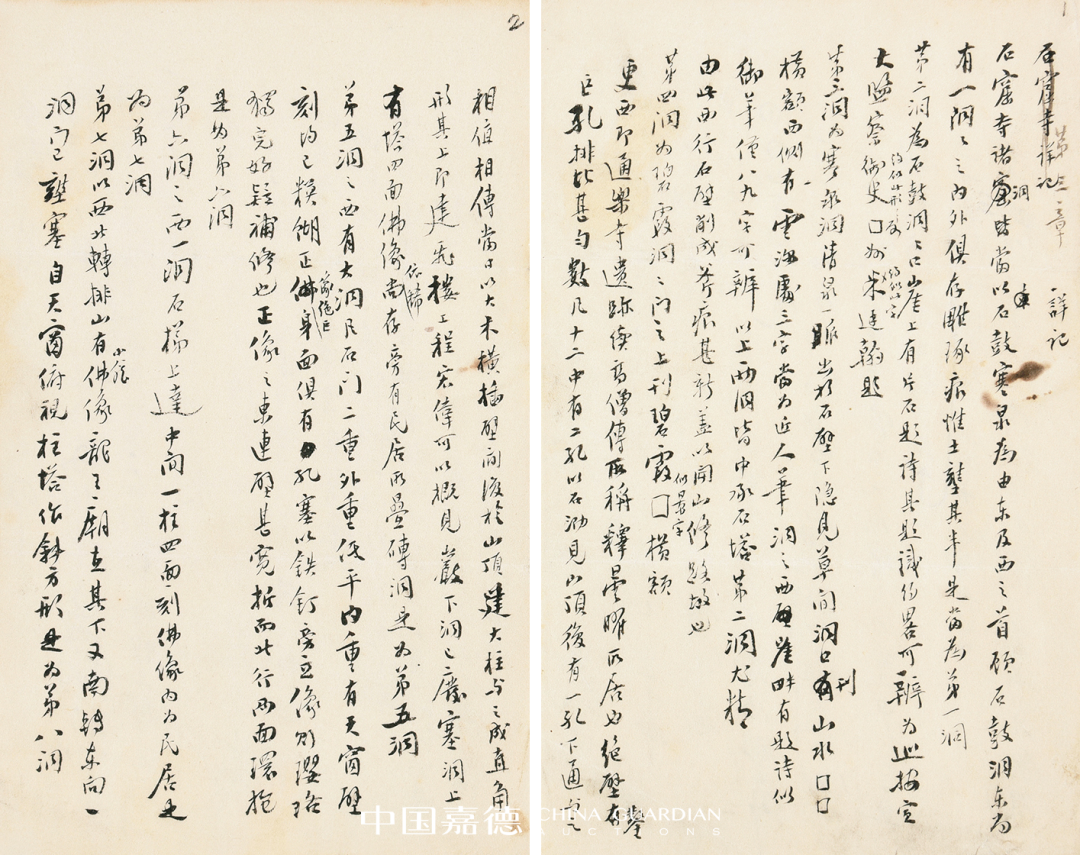 1
石窟寺詳記 第三章
一詳記
石窟寺諸洞皆當以石鼓寒泉為由東及西之首顧石鼓洞東尚
有一洞之內外俱存雕琢痕惟土壅其半是當為第一洞
第二洞為石鼓洞口崖上有片石題詩其題識約畧可辨為巡按宣
大監察御史□州宋廷翰題
第三洞為寒泉洞清泉一脈出於石壁下隱見草間洞口刊有山水□□
橫額西側有雲海靈三字當為近人筆洞之西壁崖畔有題詩似
御筆僅八九字可辨以上兩洞皆中承石塔第二洞尤精
由此西行石壁削成斧痕甚新蓋以開山修路故也
第四洞為碧霞洞之門之上刊碧霞□橫額
似君字
更西即通樂寺遺跡續高僧傳所稱釋曇曜所居也絕壁有鑿
巨孔排比甚勻數凡十二中有二孔以石泐見山頂復有一孔下通與之
2
相值相傳當日以大木橫插壁間復於山頂建大柱與之成直角
形其上即建飛樓工程宏偉可以概見巖下洞已塵塞洞上
有塔四面佛像尚依稀存旁有民居所壘磚洞是為第五洞
第五洞之西有大洞凡石門二重外重低平內重有天窗壁
刻均已模餬正佛像絕巨身面俱有孔塞以鐵釘旁立像則瓔珞
猶完好疑補修也正像之東連壁甚寬折而北行兩面環抱
是為第六洞
第六洞之西一洞石梯上達中間一柱四面刻佛像內為民居是
為第七洞
第七洞以西北轉排山有佛像小龕龍王廟在其下又南轉東向一
洞穴已壅塞自天窗俯視柱塔作斜方形是為第八洞
中国嘉德 CHINA GUARDIAN AUCTIONS